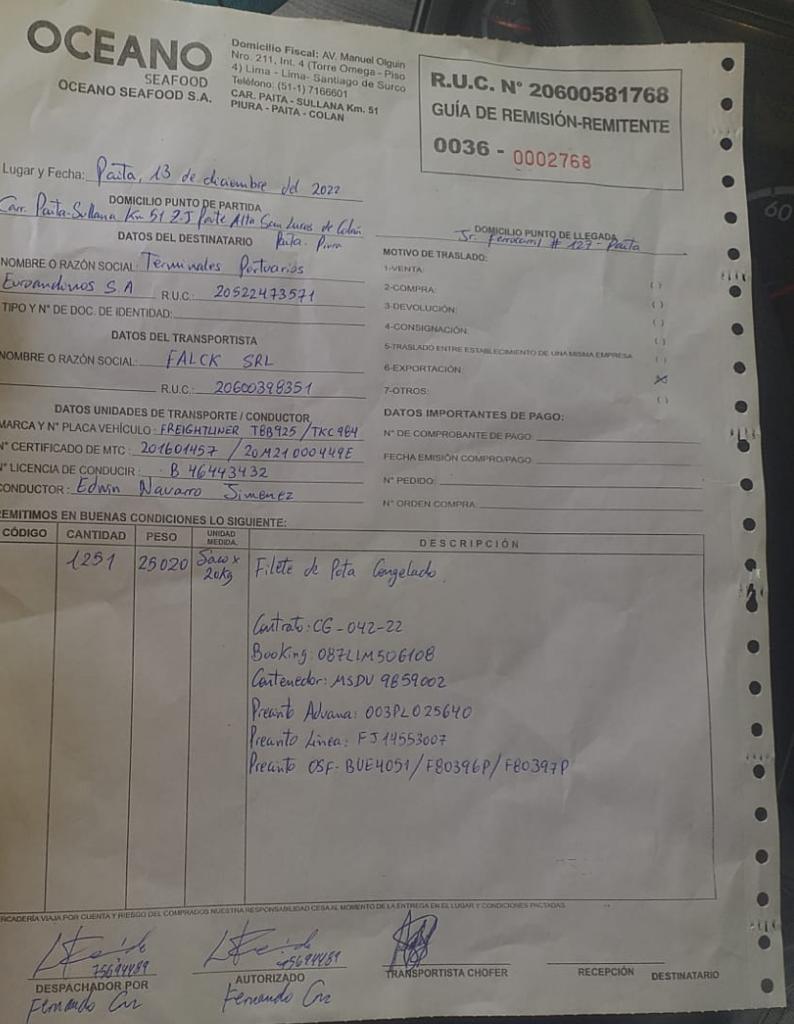 OCEANO
SEAFOOD
OCEANO SEAFOOD S.A.
Domicilio Fiscal: AV. Manuel Olguin
Nro. 211, Int. 4 (Torre Omega - Piso
4) Lima - Lima- Santiago de Surco
Teléfono: (51-1) 7166601
CAR. PAITA - SULLANA Km. 51
PIURA - PAITA - COLAN
R.U.C. N° 20600581768
GUÍA DE REMISIÓN-REMITENTE
0036 - 0002768
Lugar y Fecha: Paita, 13 de diciembre del 2022
DOMICILIO PUNTO DE PARTIDA
Carr. Paita-Sullana Km 51 Z.I Parte Alta San Lucas de Colán
Paita. Piura
DOMICILIO PUNTO DE LLEGADA
Jr. Ferrocarril # 127 - Paita
DATOS DEL DESTINATARIO
NOMBRE O RAZÓN SOCIAL: Terminales Portuarios
Euroandinos S.A R.U.C.: 20522473571
TIPO Y N° DE DOC. DE IDENTIDAD:
DATOS DEL TRANSPORTISTA
NOMBRE O RAZÓN SOCIAL: FALCK SRL
R.U.C.: 20600398351
DATOS UNIDADES DE TRANSPORTE / CONDUCTOR
MARCA Y N° PLACA VEHÍCULO: FREIGHTLINER TBB925 / TKC984
N° CERTIFICADO DE MTC: 201601457 / 20M21000449E
N° LICENCIA DE CONDUCIR: B 46443432
CONDUCTOR: Edwin Navarro Jimenez
MOTIVO DE TRASLADO:
1-VENTA: ( )
2-COMPRA: ( )
3-DEVOLUCIÓN: ( )
4-CONSIGNACIÓN: ( )
5-TRASLADO ENTRE ESTABLECIMIENTO DE UNA MISMA EMPRESA ( )
6-EXPORTACIÓN: X
7-OTROS: ( )
DATOS IMPORTANTES DE PAGO:
N° DE COMPROBANTE DE PAGO:
FECHA EMISIÓN COMPRO/PAGO:
N° PEDIDO:
N° ORDEN COMPRA:
REMITIMOS EN BUENAS CONDICIONES LO SIGUIENTE:
CÓDIGO CANTIDAD PESO UNIDAD MEDIDA. DESCRIPCIÓN
1251 25020 Saco x 20kg Filete de Pota Congelado
Contrato: CG-042-22
Booking: 087LIM506108
Contenedor: MSDU 9859002
Precinto Aduana: 003PL025640
Precinto Linea: FJ14553007
Precinto OSF: BUE4051/F80396P/F80397P
MERCADERÍA VIAJA POR CUENTA Y RIESGO DEL COMPRADOS NUESTRA RESPONSABILIDAD CESA AL MOMENTO DE LA ENTREGA EN EL LUGAR Y CONDICIONES PACTADAS
75694489
DESPACHADOR POR
Fernando Cruz
75694489
AUTORIZADO
Fernando Cruz
TRANSPORTISTA CHOFER
RECEPCIÓN DESTINATARIO
60